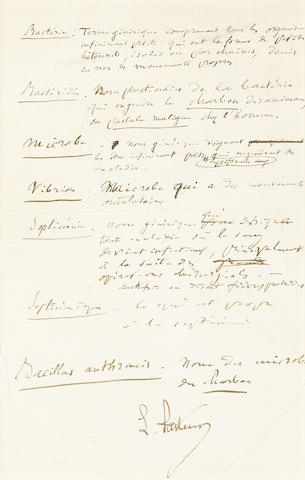 Bactérie. Terme générique comprenant tous les organismes
infiniment petits qui ont la forme de petits
bâtonnets isolés ou par chaînes, doués
ou non de mouvements propres.
Bactéridie. Nom particulier de la bactérie
qui engendre le charbon des animaux,
ou pustule maligne chez l'homme.
Microbe. Nom générique désignant
les êtres infiniment petits qui
maladies
Vibrion. Microbe qui a des mouvements
ondulatoires
Septicémie. nom générique qui désigne
toute maladie où le sang
devient infectieux, principalement
à la suite des
opérations chirurgicales
Septicémique. ce qui est propre
à la septicémie
Bacillus anthracis. Nom du microbe
du charbon
L. Pasteur